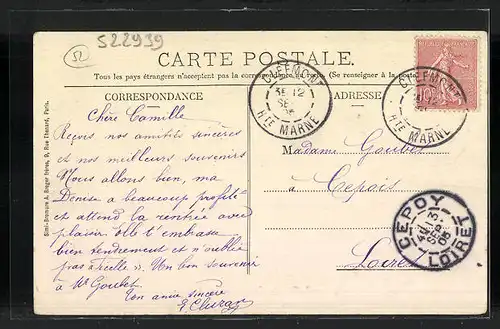 52
522939
CARTE POSTALE.
Tous les pays étrangers n'acceptent pas la correspondance au recto. (Se renseigner à la poste).
CORRESPONDANCE
ADRESSE
CLEFMONT
3E 12
SE
HTE MARNE
CLEFMONT
HTE MARNE
10
Chère Camille
Reçois nos amitiés sincères
et nos meilleurs souvenirs
Nous allons bien, ma
Denise a beaucoup profité
et attend la rentrée avec
plaisir elle t'embrasse
bien tendrement et n'oublie
pas Un bon souvenir
à Mr Goubet
Ton amie sincère
Madame Goubet
à Cepois
Loiret
CEPOY
LOIRET
Simi-Bromure A. Breger frères, 9, Rue Thénard, Paris.